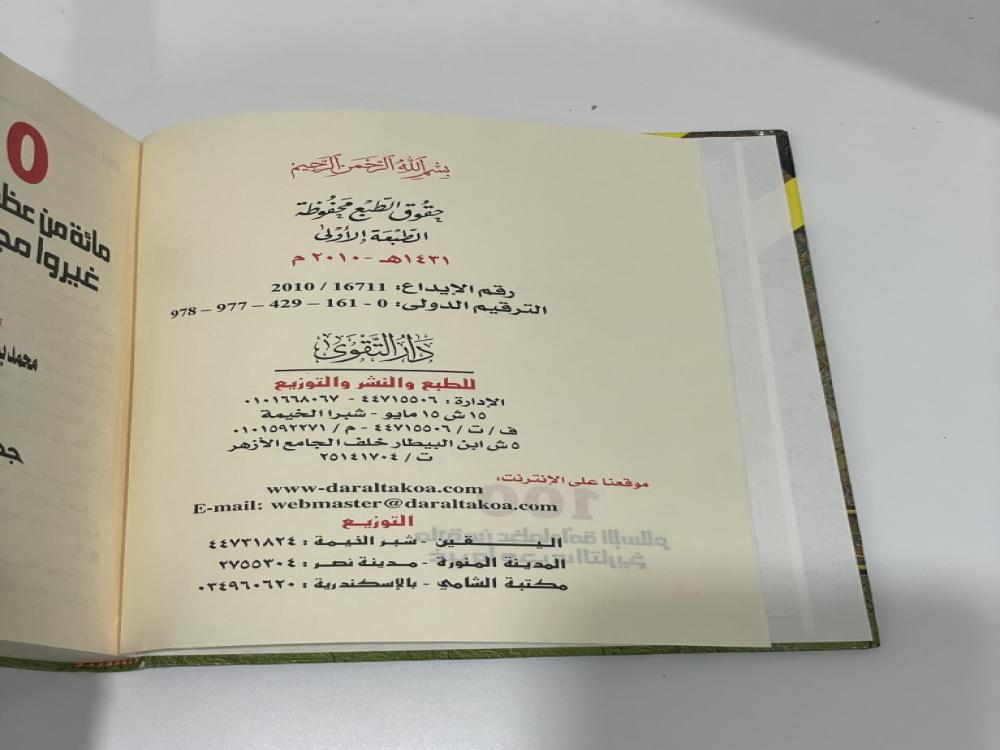 بسم الله الرحمن الرحيم
حقوق الطبع محفوظة
الطبعة الأولى
١٤٣١هـ - ٢٠١٠ م
رقم الإيداع: 16711 / 2010
الترقيم الدولى: 0 - 161 – 429 – 977 – 978
دار التقوى
للطبع والنشر والتوزيع
الإدارة: ٤٤٧١٥٥٠٦ - ٠١٠١٦٦٨٠٦٧
١٥ ش ١٥ مايو - شبرا الخيمة
ف / ت / ٤٤٧١٥٥٠٦ - م / ٠١٠١٥٩٢٢٧١
٥ ش ابن البيطار خلف الجامع الأزهر
ت / ٢٥١٤١٧٠٤
موقعنا على الإنترنت:
www-daraltakoa.com
E-mail: webmaster@daraltakoa.com
التوزيع
اليـقـين - شبر الخيمة : ٤٤٧٣١٨٢٤
المدينة المنورة - مدينة نصر : ٢٧٥٥٣٠٤
مكتبة الشامي - بالإسكندرية : ٠٣٤٩٦٠٦٢٠
0
مائة من
غيروا
محمد